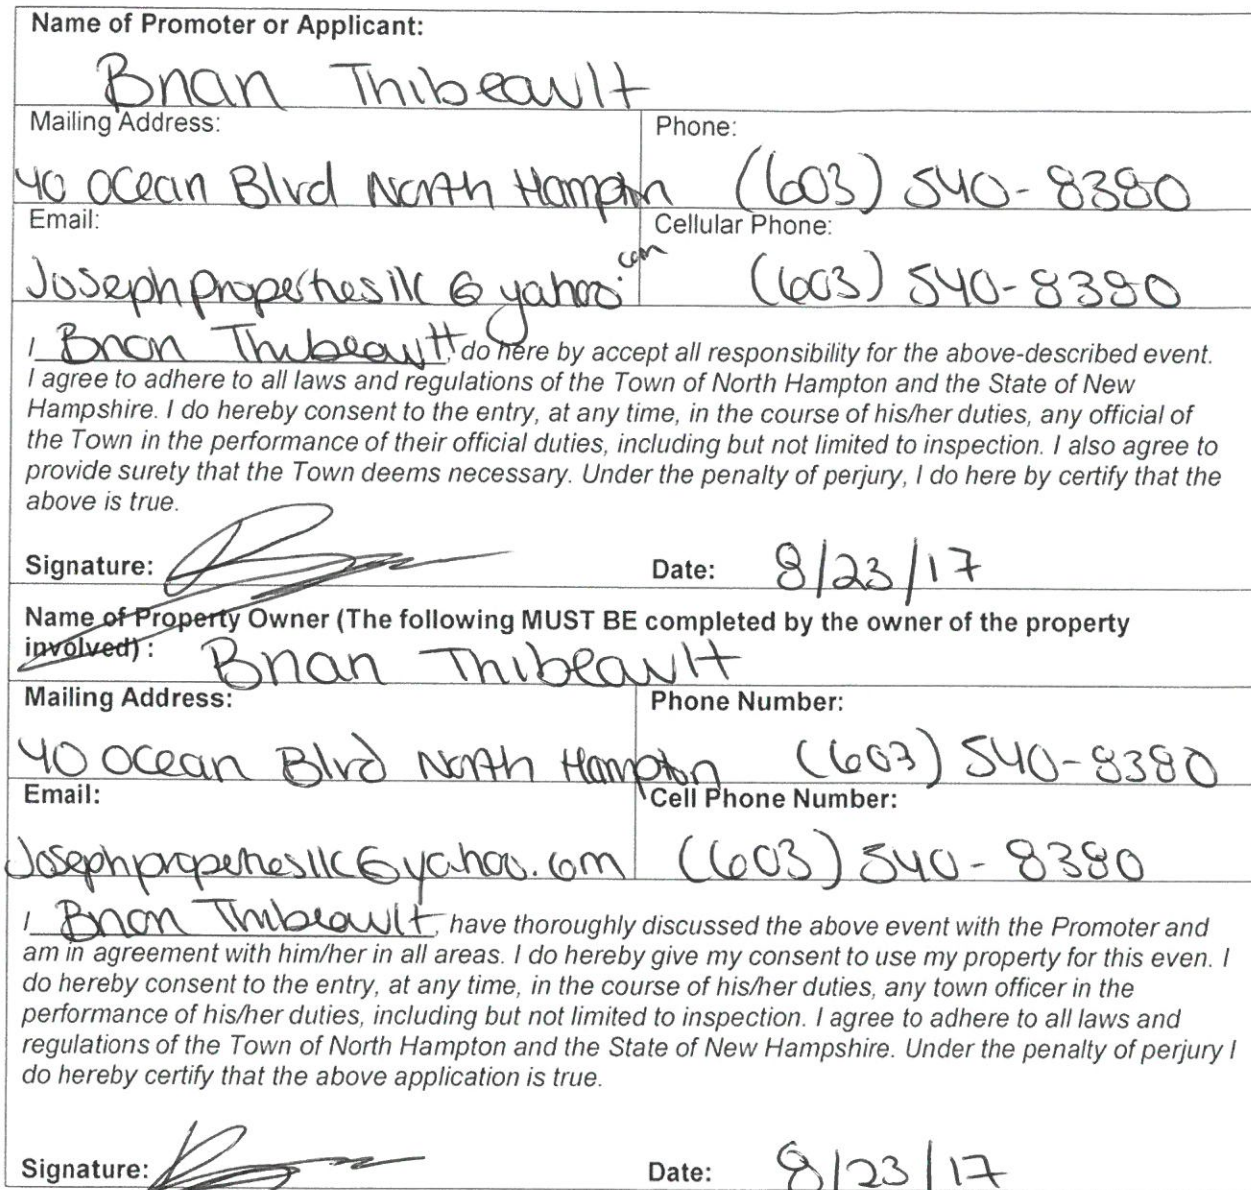 Name of Promoter or Applicant:
Brian Thibeault
Mailing Address: Phone:
40 Ocean Blvd North Hampton (603) 540-8380
Email: Cellular Phone:
Josephpropertiesllc@yahoo.com (603) 540-8380
I Brian Thibeault, do here by accept all responsibility for the above-described event.
I agree to adhere to all laws and regulations of the Town of North Hampton and the State of New
Hampshire. I do hereby consent to the entry, at any time, in the course of his/her duties, any official of
the Town in the performance of their official duties, including but not limited to inspection. I also agree to
provide surety that the Town deems necessary. Under the penalty of perjury, I do here by certify that the
above is true.
Signature: Date: 8/23/17
Name of Property Owner (The following MUST BE completed by the owner of the property
involved) : Brian Thibeault
Mailing Address: Phone Number:
40 Ocean Blvd North Hampton (603) 540-8380
Email: Cell Phone Number:
Josephpropertiesllc@yahoo.com (603) 540-8380
I Brian Thibeault, have thoroughly discussed the above event with the Promoter and
am in agreement with him/her in all areas. I do hereby give my consent to use my property for this even. I
do hereby consent to the entry, at any time, in the course of his/her duties, any town officer in the
performance of his/her duties, including but not limited to inspection. I agree to adhere to all laws and
regulations of the Town of North Hampton and the State of New Hampshire. Under the penalty of perjury I
do hereby certify that the above application is true.
Signature: Date: 8/23/17